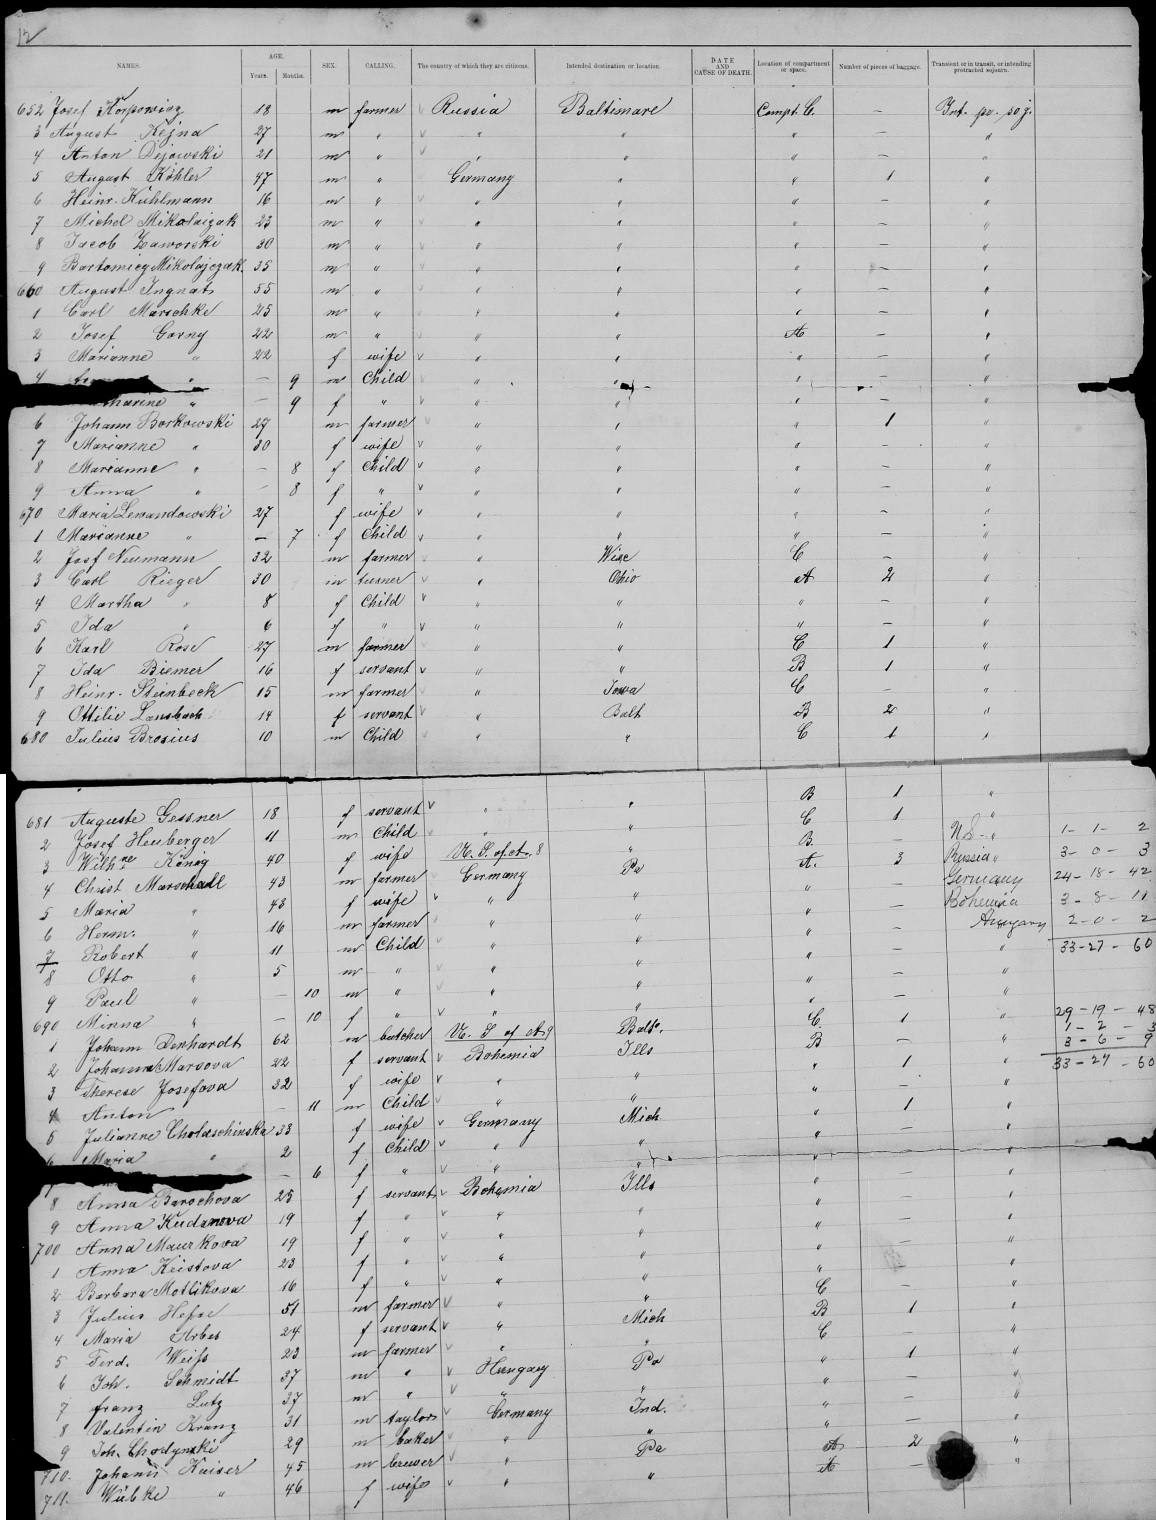 12
NAMES. AGE. Years. Months. SEX. CALLING. The country of which they are citizens. Intended destination or location. DATE AND CAUSE OF DEATH. Location of compartment or space. Number of pieces of baggage. Transient or in transit, or intending protracted sojourn.
652 Josef Korpowicz 18 m farmer v Russia Baltimore Compt C. — Int. pr. soj.
3 August Kejna 27 m " v " " " — "
4 Anton Dejowski 21 m " v " " " — "
5 August Köhler 47 m " Germany " " 1 "
6 Heinr. Kühlmann 16 m " " " " — "
7 Michel Mikolaizak 23 m " " " " — "
8 Jacob Zaworski 30 m " " " " — "
9 Bartomiey Mikolajczak. 35 m " " " " — "
660 August Ingnats 55 m " " " " — "
1 Carl Marschke 25 m " " " " — "
2 Josef Gorny 22 m " " " A — "
3 Marianne " 22 f wife v " " " — "
4 " — 9 m Child " " " — "
" — 9 f " v " " " — "
6 Johann Borkowski 27 m farmer " " " 1 "
7 Marianne " 30 f wife v " " " — "
8 Marianne " — 8 f Child v " " " — "
9 Anna " — 8 f " v " " " — "
670 Maria Lewandowski 27 f wife v " " " — "
1 Marianne " — 7 f Child v " " " — "
2 Josf Neumann 32 m farmer " Wisc C — "
3 Carl Rieger 30 m " Ohio A 2 "
4 Martha " 8 f Child v " " " — "
5 Ida " 6 f " v " " " — "
6 Karl Rose 27 m farmer " " C 1 "
7 Ida Biemer 16 f servant v " " B 1 "
8 Heinr. Steinbeck 15 m farmer " Iowa C — "
9 Ottilie Lansbach 14 f servant v " Balt B 2 "
680 Julius Brosius 10 m Child " " C 1 "
681 Auguste Gessner 18 f servant v " " B 1 "
2 Josef Heuberger 11 m Child " " C 1 "
3 Wilhne König 40 f wife U. S. of A. 8 " B. — U.S. 1-1-2
4 Christ Marschall 43 m farmer Germany Pa A. 3 Russia 3-0-3
5 Maria " 43 f wife v " " " — Germany 24-18-42
6 Herm. " 16 m farmer " " " — Bohemia 3-8-11
7 Robert " 11 m Child " " " — Hungary 2-0-2
8 Otto " 5 m " " " " — " 33-27-60
9 Paul " — 10 m " " " " — "
690 Minna " — 10 f " v " " " — "
1 Johann Denhardt 62 m butcher U. S. of A 9 Balto. C. 1 " 29-19-48
2 Johanna Marsova 22 f servant v Bohemia Ills B — " 1-2-3
3 Therese Josefova 32 f wife v " " " 1 " 3-6-9
4 Anton " — 11 m Child " " " — " 33-27-60
5 Julianne Cholaschinska 33 f wife v Germany Mich " 1 "
6 Maria " 2 f Child v " " " — "
— 6 f " v " " " — "
8 Anna Barochova 25 f servant v Bohemia Ills " "
9 Anna Kudanova 19 f " v " " " — "
700 Anna Maurkova 19 f " v " " " — "
1 Anna Kristova 23 f " v " " " — "
2 Barbara Motlikova 16 f " v " " " — "
3 Julius Hesse 51 m farmer v " " C — "
4 Maria Arbes 24 f servant v " Mich B 1 "
5 Ferd. Weiss 23 m farmer " " C — "
6 Joh. Schmidt 37 m " v Hungary Pa " 1 "
7 Franz Lutz 37 m " v " " " — "
8 Valentin Kranz 31 m taylor v Germany Ind. " — "
9 Joh. Chodynski 29 m baker v " " " — "
710. Johann Kaiser 45 m brewer v " Pa A 2 "
711. Wübke " 46 f wife v " " A — "